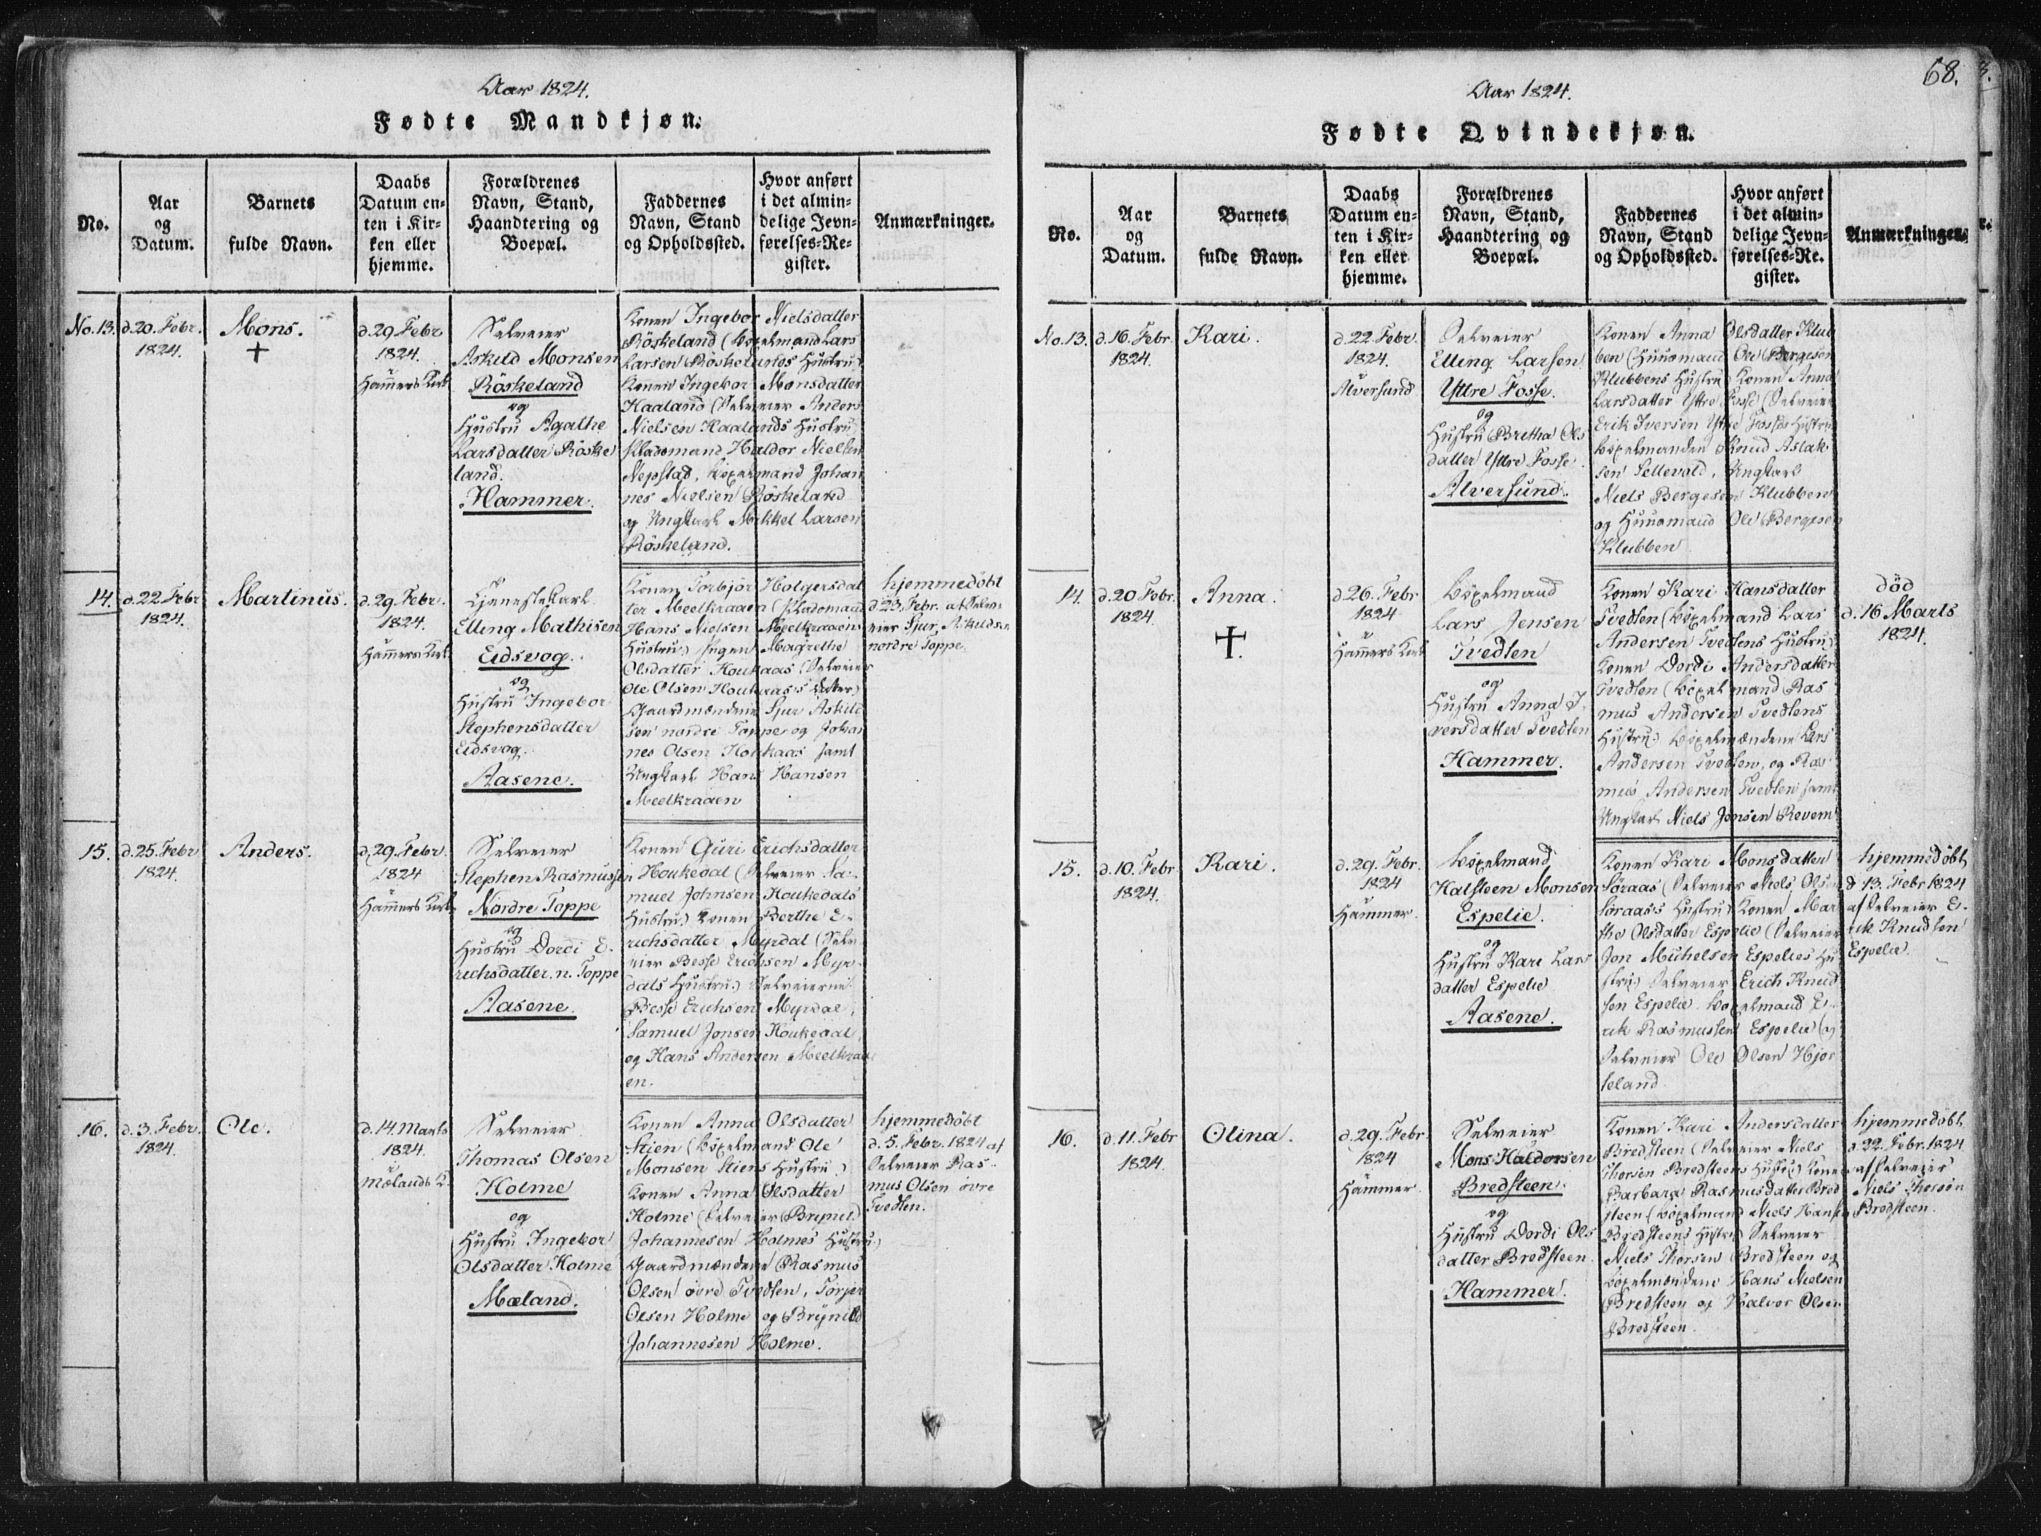 Aar 1824.
Fødte Mandkjøn.
No.
Aar
og
Datum.
Barnets
fulde Navn.
Daabs
Datum en-
ten i Kir-
ken eller
hjemme.
Forældrenes
Navn, Stand,
Haandtering og
Boepæl.
Faddernes
Navn, Stand
og Opholdssted.
Hvor anført
i det almin-
delige Jevn-
førelses-Re-
gister.
Anmærkninger.
No. 13.
d. 20. Febr.
1824.
Mons.
+
d. 29. Febr
1824.
Hamers Kirk
Selveier
Askild Monsen
Röskeland
og
Hustru Agathe
Larsdatter Röske
land.
Hammer.
Konen Ingebor Nielsdatter
Röskeland (Böxelmand Lars
Larsen Röskelands Hustru)
Konen Ingebor Monsdatter
Haaland (Selveier Anders
Nielsen Haalands Hustru
Pladsmand Haldor Nielsen
Nepstad, Böxelmand Johan
nes Nielsen Röskeland
og Ungkarl Mikkel Larsen
Röskeland.
14.
d. 22 Febr
1824.
Martinus.
d. 29. Febr.
1824.
Hamers Kirk
Tjenestekarl
Elling Mathisen
Eidsvog.
og
Hustru Ingebor
Stephensdatter
Eidsvog.
Aasene.
Konen Torbjör Holgersdat
ter Meelkraaen (Pladsmand
Hans Nielsen Meelkraaens
Hustru) Pigen Magrethe
Olsdatter Houkaas (Selveier
Ole Olsen Houkaas's Datter)
Gaardmændene Sjur Askild
sen nordre Toppe og Johan
nes Olsen Houkaas samt
Ungkarl Hans Hansen
Meelkraaen
hjemmedöbt
d. 23. Febr. af Selv-
eier Sjur Askildsen
nordre Toppe.
15.
d. 25. Febr
1824.
Anders.
d. 29. Febr.
1824
Hamers Kirk
Selveier
Stephen Rasmussen
Nordre Toppe
og
Hustru Dordi E-
richsdatter n. Toppe
Aasene.
Konen Guri Erichsdatter
Houkedal (Selveier Sa-
muel Johnsen Houkedals
Hustru) Konen Berthe E-
richsdatter Myrdal (Selv
eier Besse Erichsen Myr-
dals Hustru) Selveierne
Besse Erichsen Myrdal,
Samuel Jonsen Houkedal,
og Hans Andersen Meelkraa
en.
16.
d. 3. Febr.
1824.
Ole.
d. 14. Marts
1824.
Mælands K.
Selveier
Thomas Olsen
Holme
og
Hustru Ingebor
Olsdatter Holme
Mæland.
Konen Anna Olsdatter
Stien (Böxelmand Ole
Monsen Stiens Hustru)
Konen Anna Olsdatter
Holme (Selveier Brynild
Johannesen Holmes Hustru)
Gaardmændene Rasmus
Olsen övre Tvedten, Torjer
Olsen Holme og Brynild
Johannesen Holme.
hjemmedöbt
d. 5. Febr. 1824 af
Selveier Ras-
mus Olsen övre
Tvedten.
68.
Aar 1824.
Fødte Qvindekjøn.
No.
Aar
og
Datum.
Barnets
fulde Navn.
Daabs
Datum en-
ten i Kir-
ken eller
hjemme.
Forældrenes
Navn, Stand,
Haandtering og
Boepæl.
Faddernes
Navn, Stand
og Opholdssted.
Hvor anført
i det almin-
delige Jevn-
førelses-Re-
gister.
Anmærkninger.
No. 13.
d. 16. Febr
1824.
Kari.
d. 22 Febr.
1824.
Alversund
Selveier
Elling Larsen
Yttre Fosse.
og
Hustru Bretha Ols
datter Yttre Fosse.
Alversund.
Konen Anna Olsdatter Klub
ben (Huusmand Ole Bergesen
Klubbens Hustru) Konen Anna
Larsdatter Yttre Fosse (Selveier
Erik Iversen Yttre Fosses Hustru
Böxelmanden Knud Aslak-
sen Sellevold, Ungkarl
Niels Bergesen Klubben
og Huusmand Ole Bergesen
Klubben
14.
d. 20 Febr.
1824.
Anna.
+
d. 26. Febr
1824
Hamers Kirk
Böxelmand
Lars Jensen
Tvedten
og
Hustru Anna I-
versdatter Tvedten
Hammer.
Konen Kari Hansdatter
Tvedten (Böxelmand Lars
Andersen Tvedtens Hustru)
Konen Dordi Andersdatter
Tvedten (Böxelmand Ras
mus Andersen Tvedtens
Hustru) Böxelmændene Lars
Andersen Tvedten, og Ras
mus Andersen Tvedten samt
Ungkarl Niels Jensen Revem
död
d. 16 Marts
1824.
15.
d. 10. Febr.
1824.
Kari.
d. 29. Febr.
1824
Hammer.
Böxelmand
Halsteen Monsen
Espelie.
og
Hustru Kari Lars
datter Espelie
Aasene.
Konen Kari Monsdatter
Söraas (Selveier Niels Olsen
Söraas's Hustru) Konen Mar
the Olsdatter Espelie (Selveier
Jon Michelsen Espelies Hu
stru) Selveier Erich Knud
sen Espelie. Böxelmand E-
rik Rasmussen Espelie og
Selveier Ole Olsen Hjor
teland
hjemmedöbt
d 13. Febr 1824
af Selveier E-
rik Knudsen
Espelie.
16.
d. 11. Febr
1824.
Olina.
d. 29. Febr.
1824
Hammer.
Selveier
Mons Haldorsen
Bredsteen.
og
Hustru Dordi Ols
datter Bredsteen.
Hammer.
Konen Kari Andersdatter
Bredsteen (Selveier Niels
Thorsen Bredsteens Hustru) Konen
Barbara Rasmusdatter Bred
steen (Böxelmand Niels Hansen
Bredsteens Hustru) Selveier
Niels Thorsen Bredsteen og
Böxelmændene Hans Nielsen
Bredsteen og Halvor Olsen
Bredsteen.
hjemmedöbt
d. 22. Febr. 1824
af Selveier
Niels Thorsen
Bredsteen.